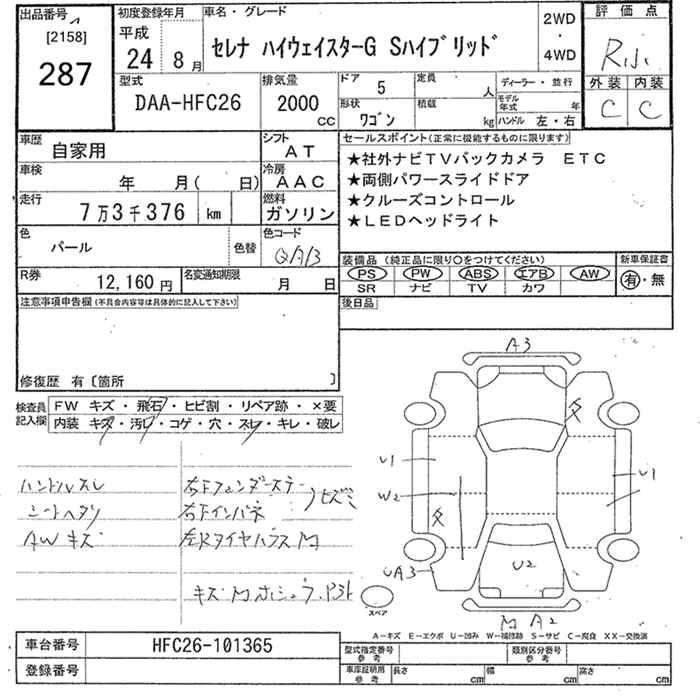 出品番号
[2158]
287
初度登録年月
平成
24年 8月
車名・グレード
セレナ ハイウェイスターG Sハイブリッド
2WD
・
4WD
評価点
外装 内装
C C
型式
DAA-HFC26
排気量
2000 cc
ドア 5
形状 ワゴン
定員 人
積載 kg
ディーラー・並行
モデル年式 年
ハンドル 左・右
車歴 自家用
シフト AT
車検 年 月( 日)
冷房 AAC
走行 7万3千376 km
燃料 ガソリン
色 パール
色替
色コード QAB
R券 12,160円
名変通知期限 月 日
セールスポイント(正常に機能するものに限ります)
★社外ナビTVバックカメラ ETC
★両側パワースライドドア
★クルーズコントロール
★LEDヘッドライト
装備品 (純正品に限り○をつけてください)
PS PW ABS エアB AW
SR ナビ TV カワ
新車保証書
有・無
後日品
注意事項申告欄(不具合内容等は具体的に記入して下さい)
修復歴 有〔箇所 〕
検査員記入欄
FW キズ・飛石・ヒビ割・リペア跡・×要
内装 キズ・汚レ・コゲ・穴・スレ・キレ・破レ
ハンドルスレ
シートヘタリ
AWキズ
右Fフェンダーステー
右Fインパネ
左RタイヤハウスM
A3
U1
W2
UA3
U2
U1
M A2
スペア
A-キズ E-エクボ U-凹み W-補修跡 S-サビ C-腐食 XX-交換済
車台番号 HFC26-101365
登録番号
型式指定番号 参考
類別区分番号 参考
車庫証明用 参考
長さ cm 幅 cm 高さ cm